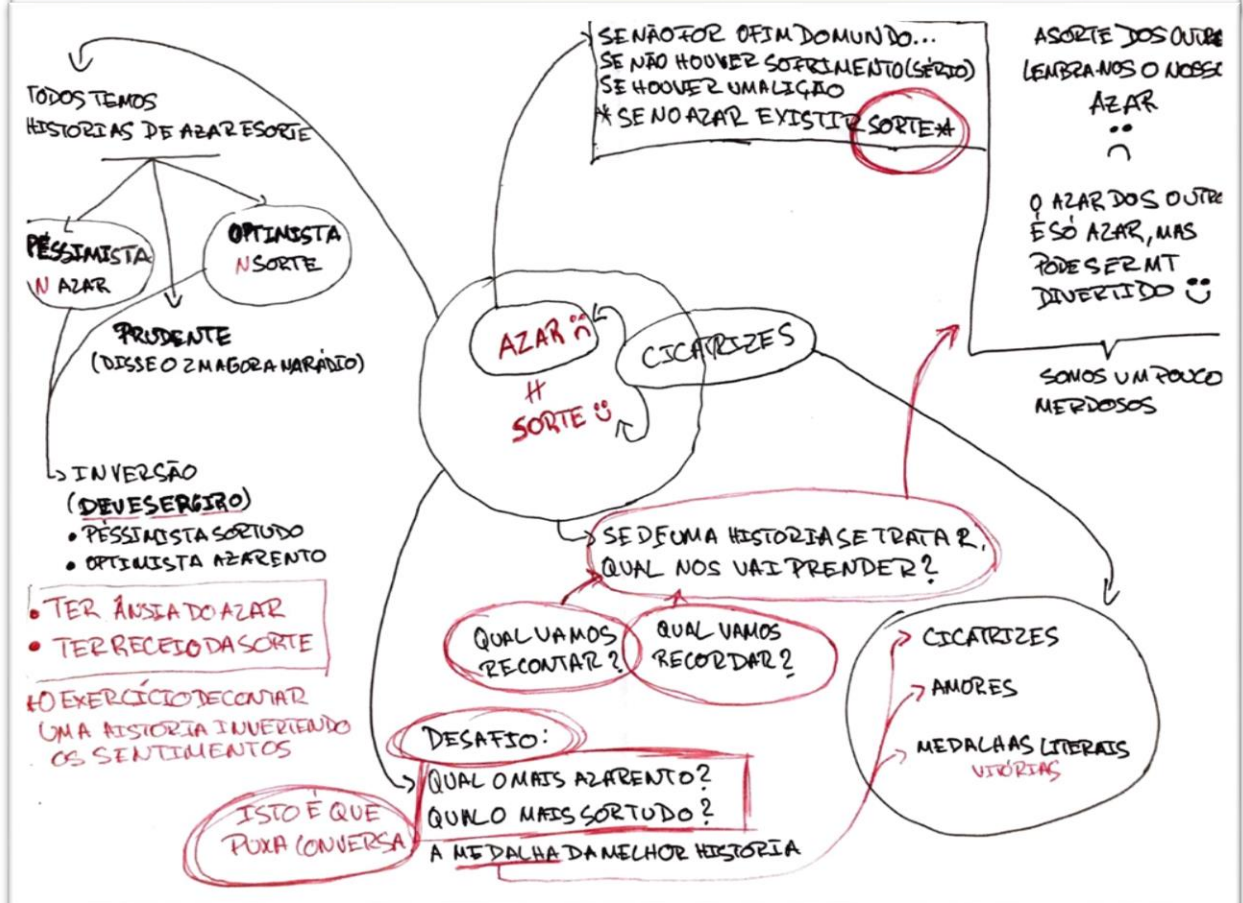 TODOS TEMOS
HISTORIAS DE AZAR E SORTE
PÉSSIMISTA
N AZAR
OPTIMISTA
N SORTE
PRUDENTE
(DISSE O ZM AGORA NA RÁDIO)
INVERSÃO
(DEVE SER GIRO)
• PÉSSIMISTA SORTUDO
• OPTIMISTA AZARENTO
• TER ÂNSIA DO AZAR
• TER RECEIO DA SORTE
+ O EXERCÍCIO DE CONTAR
UMA HISTORIA INVERTENDO
OS SENTIMENTOS
SE NÃO FOR O FIM DO MUNDO...
SE NÃO HOUVER SOFRIMENTO (SÉRIO)
SE HOUVER UMA LIÇÃO
* SE NO AZAR EXISTIR SORTE *
A SORTE DOS OUTRO
LEMBRA-NOS O NOSSO
AZAR
O AZAR DOS OUTRO
É SÓ AZAR, MAS
PODE SER MT
DIVERTIDO
SOMOS UM POUCO
MERDOSOS
AZAR
SORTE
CICATRIZES
SE DE UMA HISTORIA SE TRATAR,
QUAL NOS VAI PRENDER?
QUAL VAMOS
RECONTAR?
QUAL VAMOS
RECORDAR?
DESAFIO:
QUAL O MAIS AZARENTO?
QUAL O MAIS SORTUDO?
A MEDALHA DA MELHOR HISTORIA
ISTO É QUE
PUXA CONVERSA
CICATRIZES
AMORES
MEDALHAS LITERAIS
VITÓRIAS